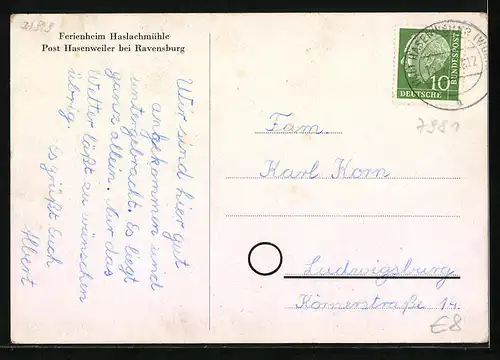 21599
Ferienheim Haslachmühle
Post Hasenweiler bei Ravensburg
Wir sind hier gut
angekommen und
untergebracht. Es liegt
ganz allein. Nur das
Wetter läßt zu wünschen
übrig.
Es grüßt Euch
Albert
HASENWEILER
10
DEUTSCHE
BUNDESPOST
7981
Fam.
Karl Korn
Ludwigsburg
Körnerstraße 14.
€8